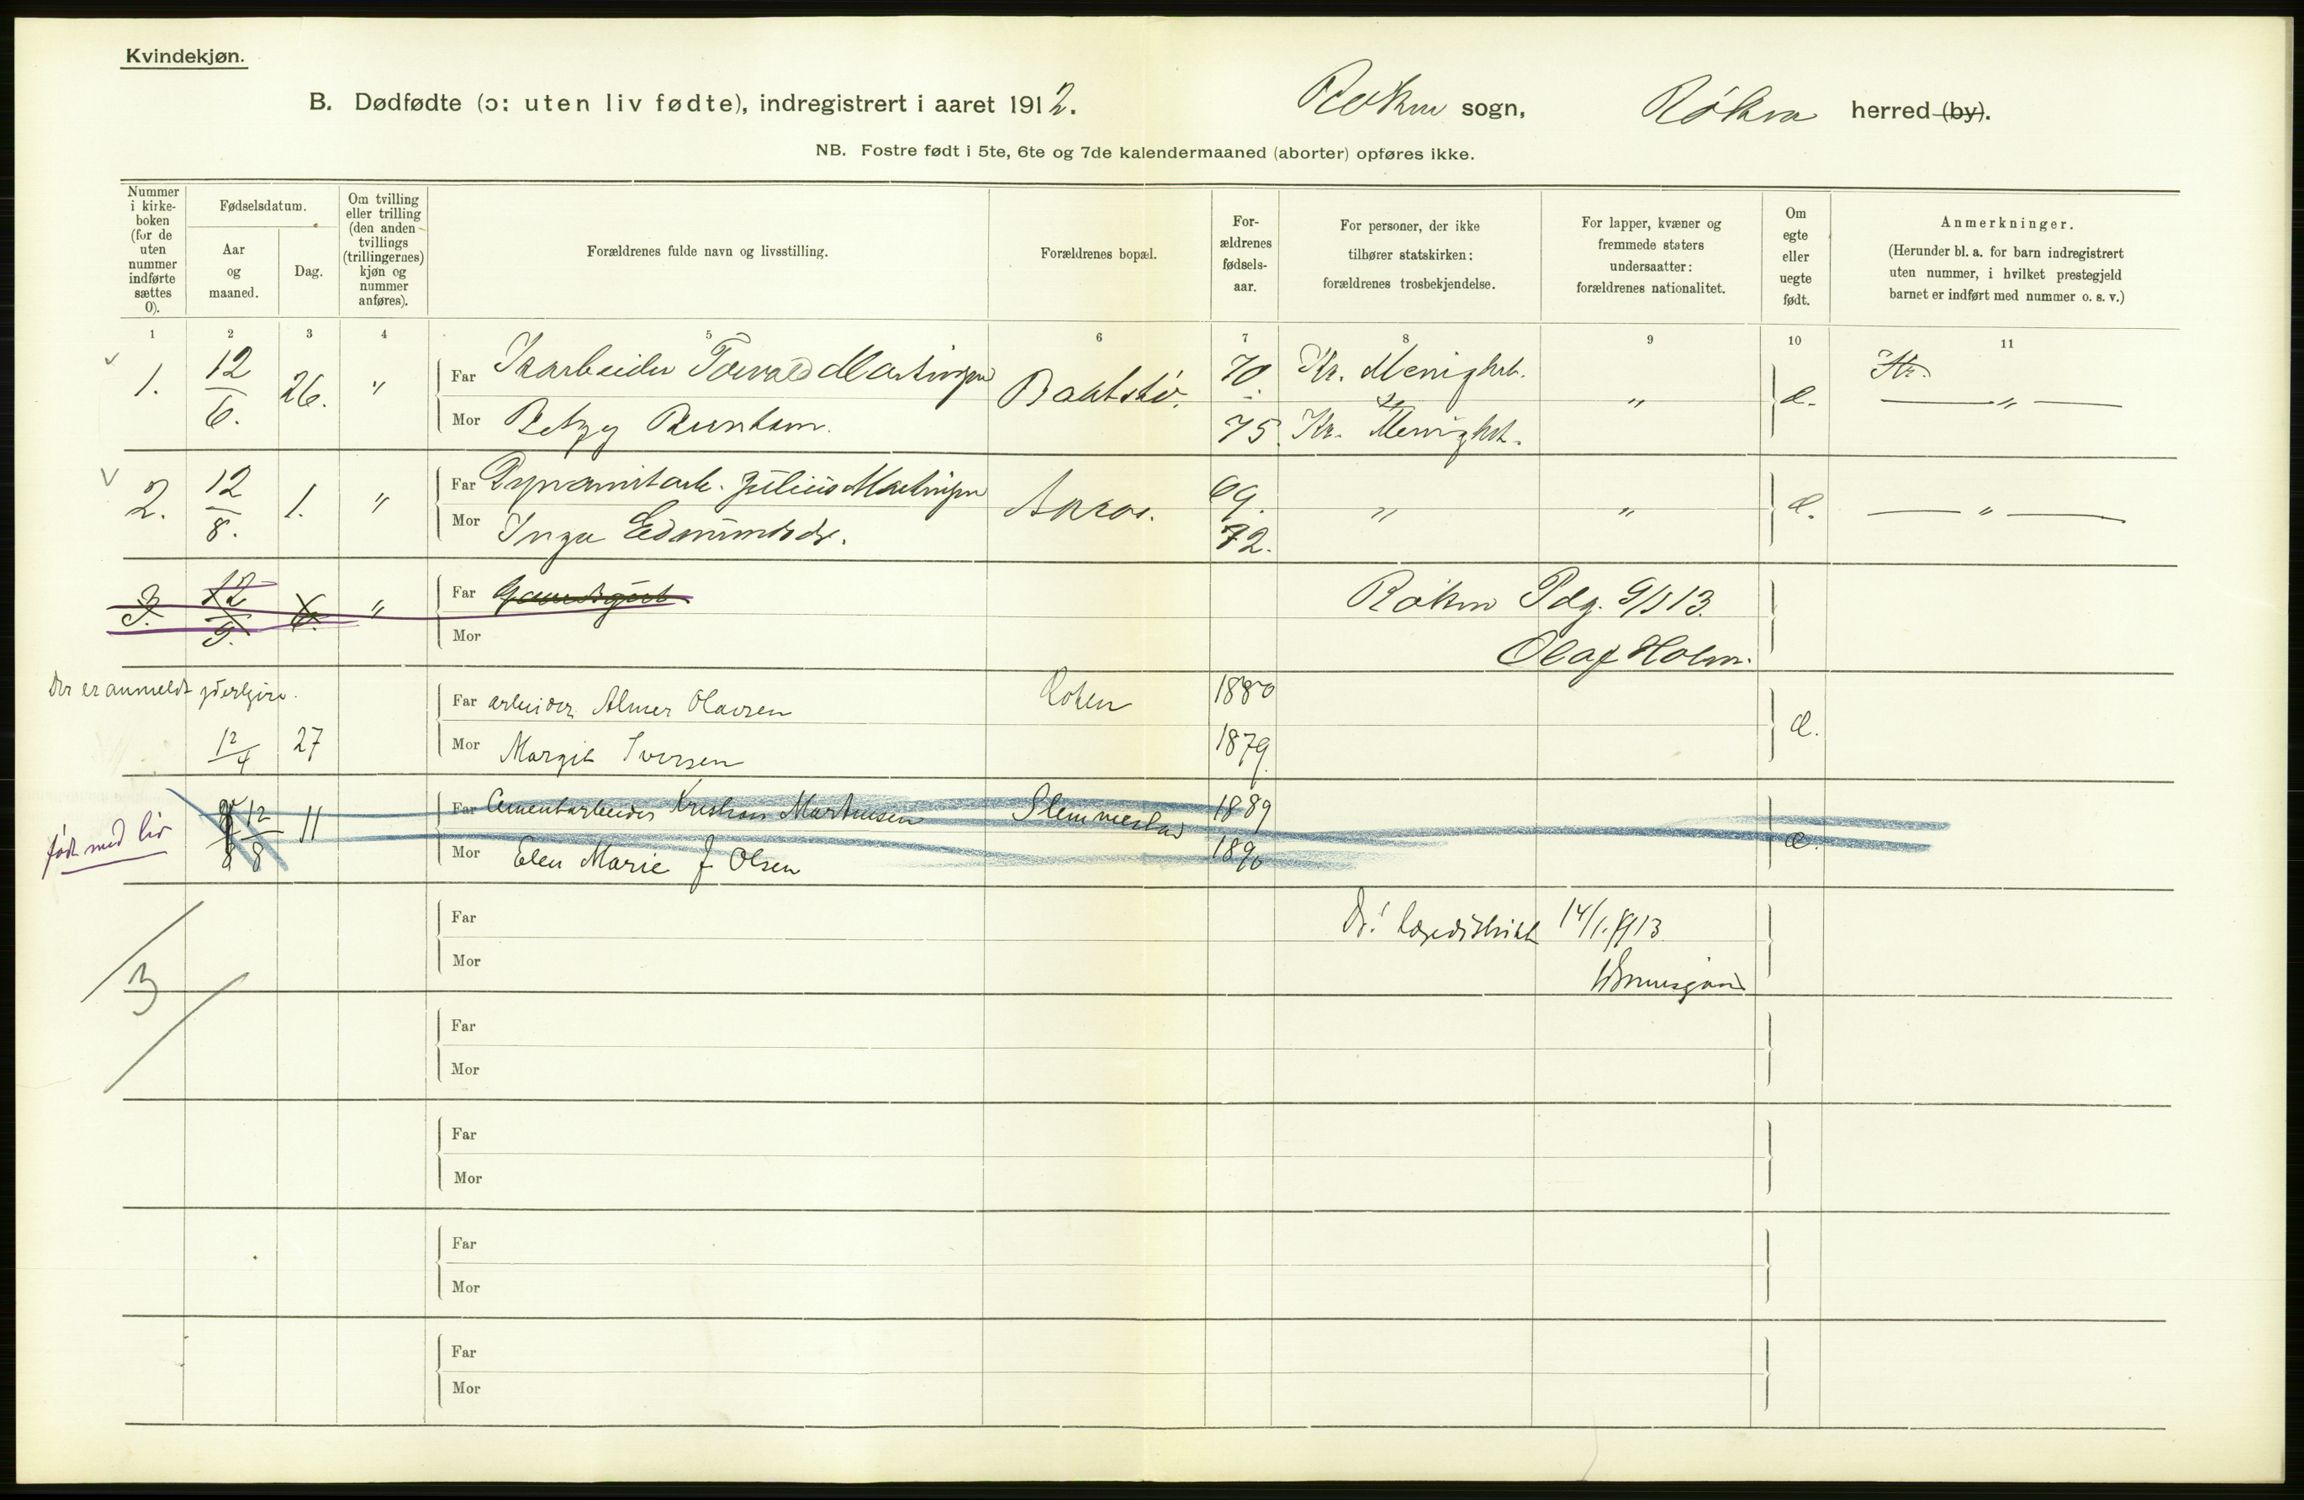 Kvindekjøn.
B. Dødfødte (ɔ: uten liv fødte), indregistrert i aaret 1912. Røken sogn, Røken herred (by).
NB. Fostre født i 5te, 6te og 7de kalendermaaned (aborter) opføres ikke.
Nummer i kirke-boken (for de uten nummer indførte sættes 0).
Fødselsdatum.
Aar og maaned.
Dag.
Om tvilling eller trilling (den anden tvillings (trillingernes) kjøn og nummer anføres).
Forældrenes fulde navn og livsstilling.
Forældrenes bopæl.
For-ældrenes fødsels-aar.
For personer, der ikke tilhører statskirken: forældrenes trosbekjendelse.
For lapper, kvæner og fremmede staters undersaatter: forældrenes nationalitet.
Om egte eller uegte født.
Anmerkninger.
(Herunder bl. a. for barn indregistrert uten nummer, i hvilket prestegjeld barnet er indført med nummer o. s. v.)
1 2 3 4 5 6 7 8 9 10 11
1. 12/6. 26. " Far Torvald Martinsen 70 Kr. Menighet. " e. — " —
Mor Betzy 75. Kr. Menighet.
2. 12/8. 1. " Far Dynamitarb. Julius Martinsen Aaros. 69. " " e. — " —
Mor Inga Edmundsdr. 72.
3. 12/9. 6. " Far
Mor
Røken Pdg. 9/1 13.
Olaf Holm.
Der er anmeldt yderligere.
12/4 27 Far arbeider Almer Olavsen Røken 1880 e.
Mor Margit Iversen 1879.
født med liv
12/8 11 Far Cementarbeider Kristian Martinsen Slemmestad 1889 e.
Mor Elen Marie J Olsen 1890
Far
Mor
14/1. 1913
3
Far
Mor
Far
Mor
Far
Mor
Far
Mor